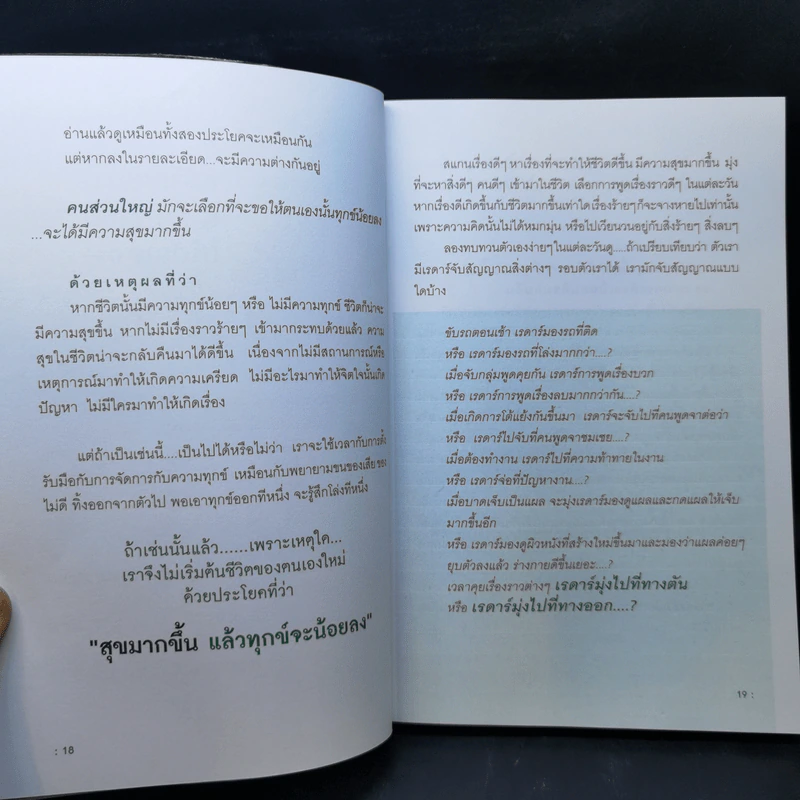 อ่านแล้วดูเหมือนทั้งสองประโยคจะเหมือนกัน
แต่หากลงในรายละเอียด...จะมีความต่างกันอยู่
คนส่วนใหญ่ มักจะเลือกที่จะขอให้ตนเองนั้นทุกข์น้อยลง
...จะได้มีความสุขมากขึ้น
ด้วยเหตุผลที่ว่า
หากชีวิตนั้นมีความทุกข์น้อยๆ หรือ ไม่มีความทุกข์ ชีวิตก็น่าจะ
มีความสุขขึ้น หากไม่มีเรื่องราวร้ายๆ เข้ามากระทบด้วยแล้ว ความ
สุขในชีวิตน่าจะกลับคืนมาได้ดีขึ้น เนื่องจากไม่มีสถานการณ์หรือ
เหตุการณ์มาทำให้เกิดความเครียด ไม่มีอะไรมาทำให้จิตใจนั้นเกิด
ปัญหา ไม่มีใครมาทำให้เกิดเรื่อง
แต่ถ้าเป็นเช่นนี้....เป็นไปได้หรือไม่ว่า เราจะใช้เวลากับการตั้ง
รับมือกับการจัดการกับความทุกข์ เหมือนกับพยายามขนของเสีย ของ
ไม่ดี ทิ้งออกจากตัวไป พอเอาทุกข์ออกทีหนึ่ง จะรู้สึกโล่งทีหนึ่ง
ถ้าเช่นนั้นแล้ว......เพราะเหตุใด...
เราจึงไม่เริ่มต้นชีวิตของตนเองใหม่
ด้วยประโยคที่ว่า
"สุขมากขึ้น แล้วทุกข์จะน้อยลง"
: 18
สแกนเรื่องดีๆ หาเรื่องที่จะทำให้ชีวิตดีขึ้น มีความสุขมากขึ้น มุ่ง
ที่จะหาสิ่งดีๆ คนดีๆ เข้ามาในชีวิต เลือกการพูดเรื่องราวดีๆ ในแต่ละวัน
หากเรื่องดีเกิดขึ้นกับชีวิตมากขึ้นเท่าใด เรื่องร้ายๆ ก็จะจางหายไปเท่านั้น
เพราะความคิดนั้นไม่ได้หมกมุ่น หรือไปเวียนวนอยู่กับสิ่งร้ายๆ สิ่งลบๆ
ลองทบทวนตัวเองง่ายๆ ในแต่ละวันดู....ถ้าเปรียบเทียบว่า ตัวเรา
มีเรดาร์จับสัญญาณสิ่งต่างๆ รอบตัวเราได้ เรามักจับสัญญาณแบบ
ใดบ้าง
ขับรถตอนเช้า เรดาร์มองรถที่ติด
หรือ เรดาร์มองรถที่โล่งมากกว่า....?
เมื่อจับกลุ่มพูดคุยกัน เรดาร์การพูดเรื่องบวก
หรือ เรดาร์การพูดเรื่องลบมากกว่ากัน....?
เมื่อเกิดการโต้แย้งกันขึ้นมา เรดาร์จะจับไปที่คนพูดจาต่อว่า
หรือ เรดาร์ไปจับที่คนพูดจาชมเชย....?
เมื่อต้องทำงาน เรดาร์ไปที่ความท้าทายในงาน
หรือ เรดาร์จ่อที่ปัญหางาน....?
เมื่อบาดเจ็บเป็นแผล จะมุ่งเรดาร์มองดูแผลและกดแผลให้เจ็บ
มากขึ้นอีก
หรือ เรดาร์มองดูผิวหนังที่สร้างใหม่ขึ้นมาและมองว่าแผลค่อยๆ
ยุบตัวลงแล้ว ร่างกายดีขึ้นเยอะ....?
เวลาคุยเรื่องราวต่างๆ เรดาร์มุ่งไปที่ทางตัน
หรือ เรดาร์มุ่งไปที่ทางออก....?
19 :